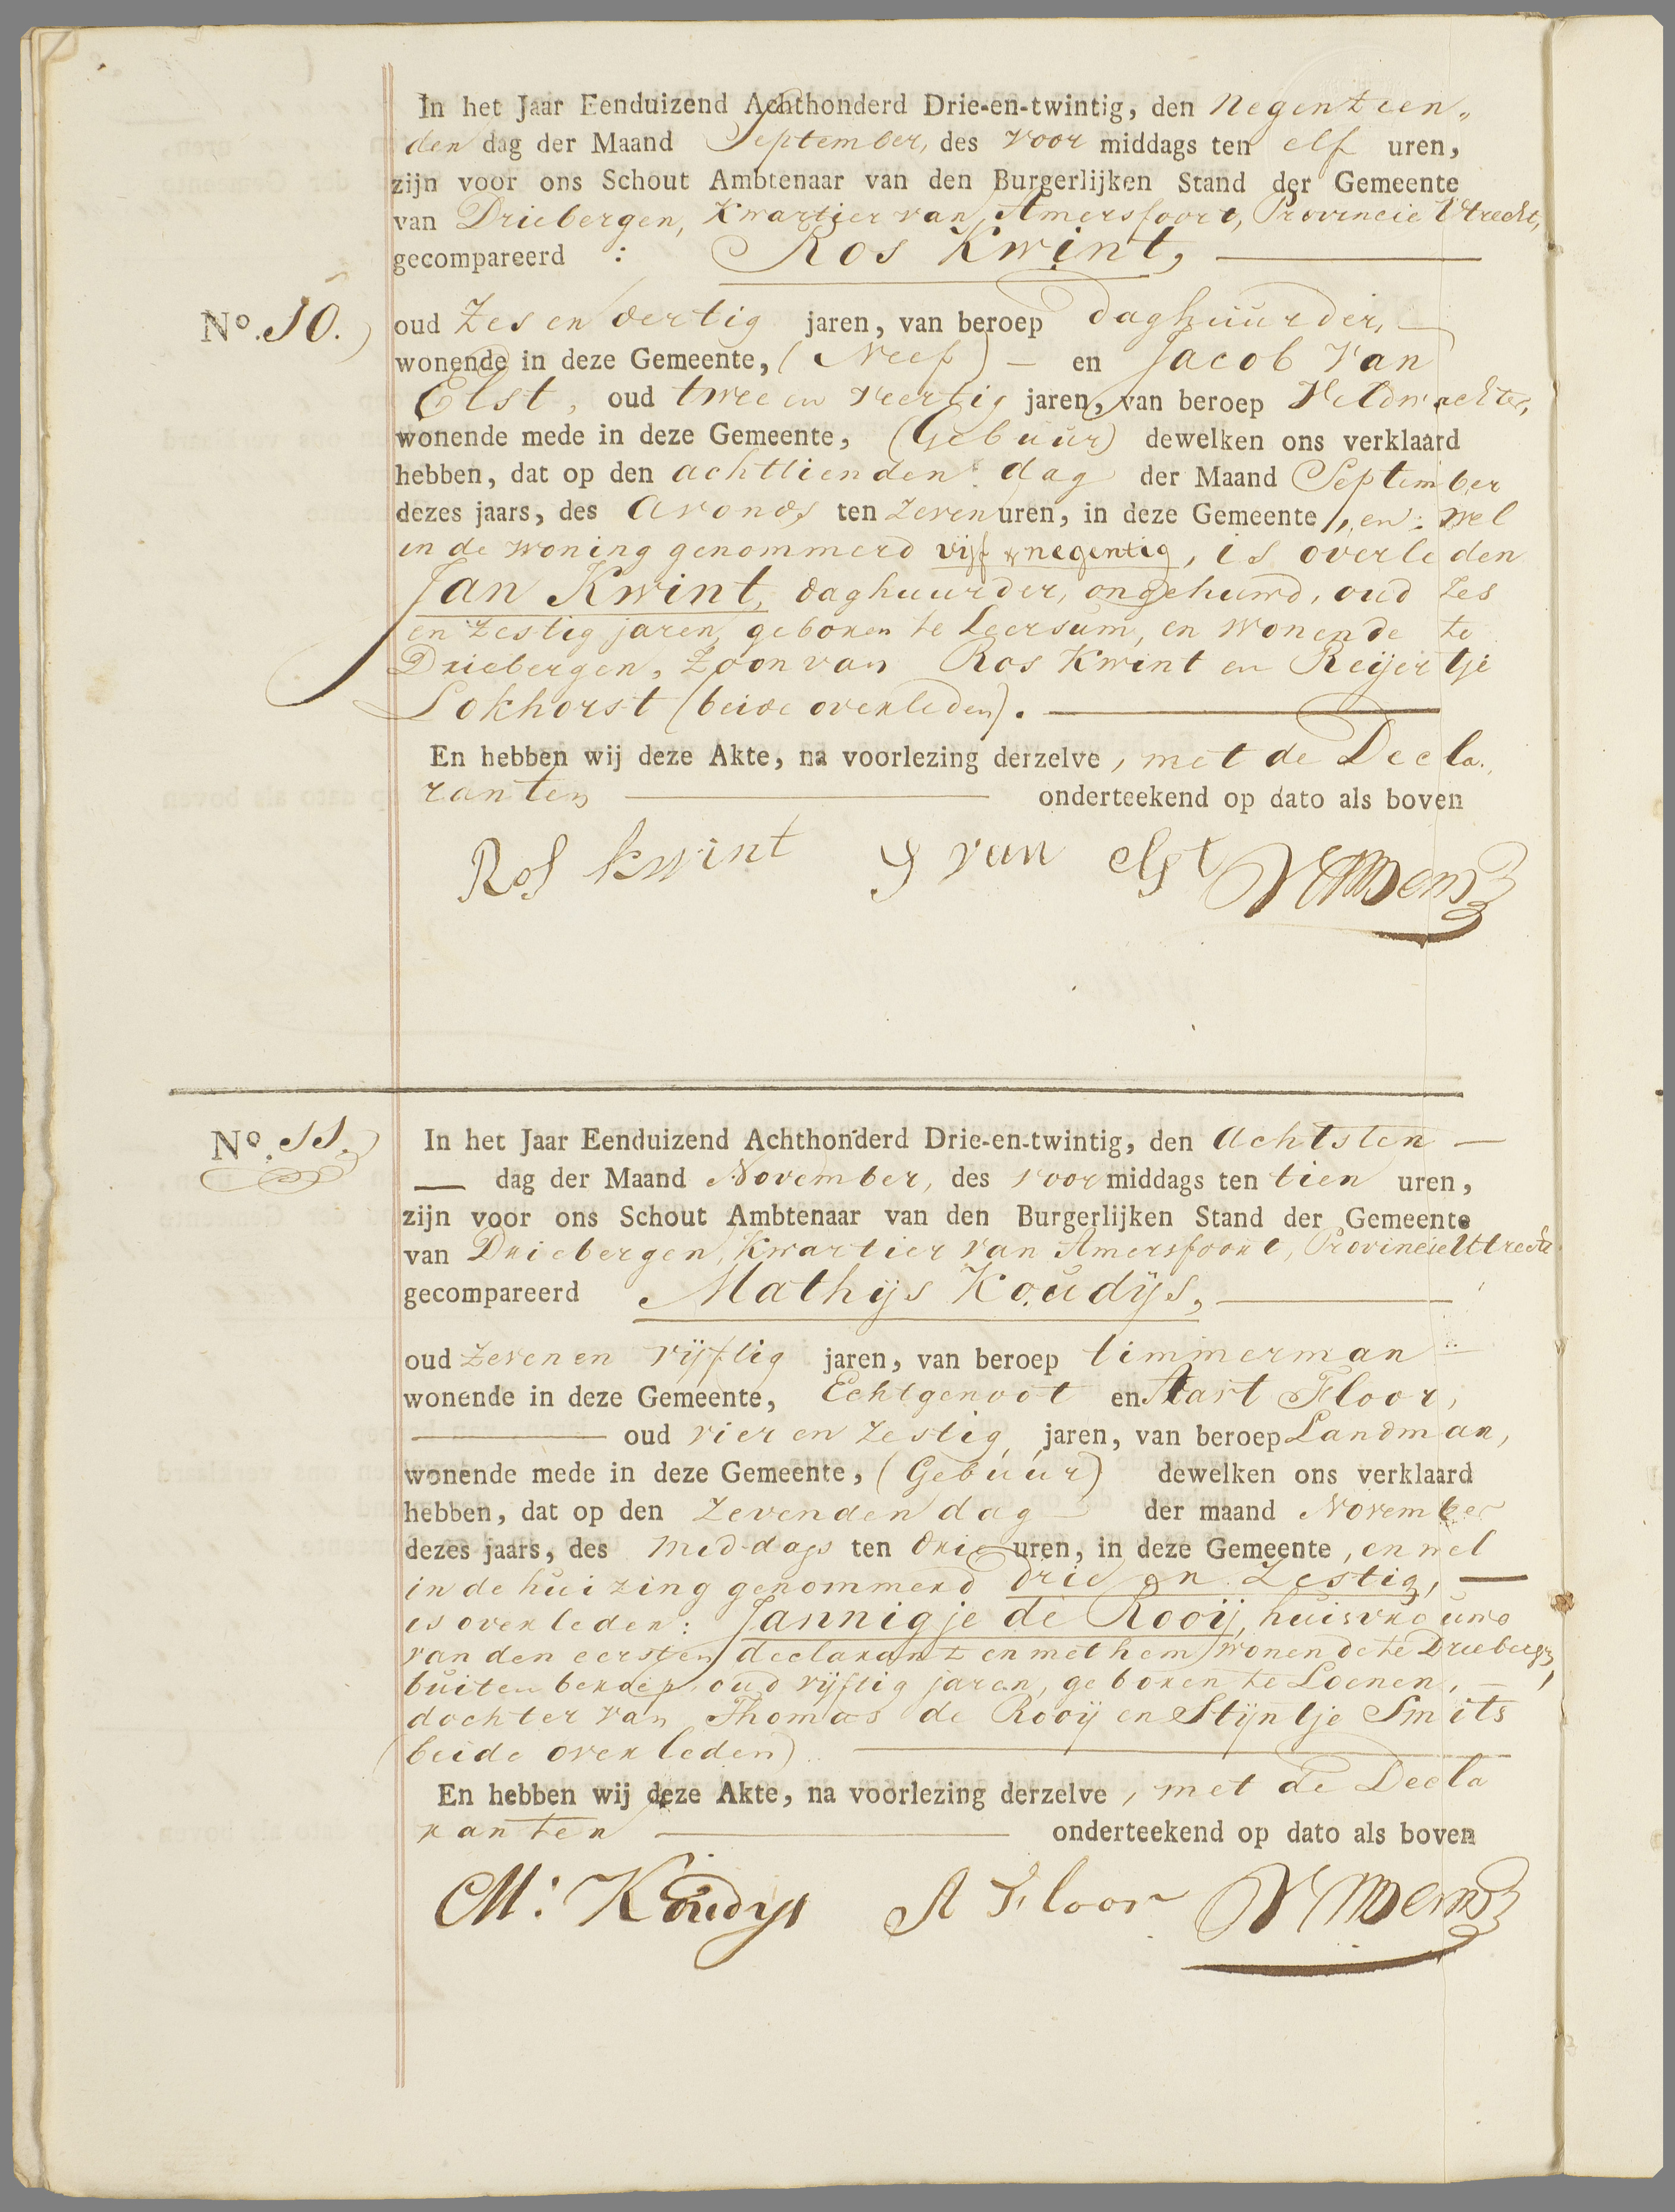 In het Jaar Eenduizend Achthonderd Drie-en-twintig, den negentien„
den dag der Maand September, des voor middags ten elf uren,
zijn voor ons Schout Ambtenaar van den Burgerlijken Stand der Gemeente
van Driebergen, Kwartier van Amersfoort, Provincie Utrecht,
gecompareerd : Ros Kwint,
No. 10.
oud Zes en dertig jaren, van beroep daghuurder,
wonende in deze Gemeente, (Neef) — en Jacob van
Elst, oud twee en veertig jaren, van beroep Veldwachter,
wonende mede in deze Gemeente, (Gebuur) dewelken ons verklaard
hebben, dat op den achttienden dag der Maand September
dezes jaars, des avonds ten zeven uren, in deze Gemeente, en wel
in de woning genommerd vijf & negentig, is overleden
Jan Kwint, daghuurder, ongehuwd, oud zes
en zestig jaren, geboren te Leersum, en wonende te
Driebergen, Zoon van Ros Kwint en Reijertje
Lokhorst (beide overleden).
En hebben wij deze Akte, na voorlezing derzelve, met de Decla
ranten onderteekend op dato als boven
Ros kwint J van elst
No. 11.
In het Jaar Eenduizend Achthonderd Drie-en-twintig, den Achtsten —
— dag der Maand November, des voor middags ten tien uren,
zijn voor ons Schout Ambtenaar van den Burgerlijken Stand der Gemeente
van Driebergen, Kwartier van Amersfoort, Provincie Uttrecht
gecompareerd Mathijs Koudijs,
oud zeven en vijftig jaren, van beroep timmerman
wonende in deze Gemeente, Echtgenoot en Aart Floor,
oud vier en zestig jaren, van beroep Landman,
wonende mede in deze Gemeente, (Gebuur) dewelken ons verklaard
hebben, dat op den zevenden dag der maand November
dezes jaars, des middags ten drie uren, in deze Gemeente, en wel
in de huizing genommerd drie en Zestig, —
is overleden: Jannigje de Rooij, huisvrouw
van den eersten declarant en met hem wonende te Driebergen,
buiten beroep, oud vijftig jaren, geboren te Loenen, —
dochter van Thomas de Rooij en Stijntje Smits
(beide overleden).
En hebben wij deze Akte, na voorlezing derzelve, met de Decla
ranten onderteekend op dato als boven
M: Koudys A Floor